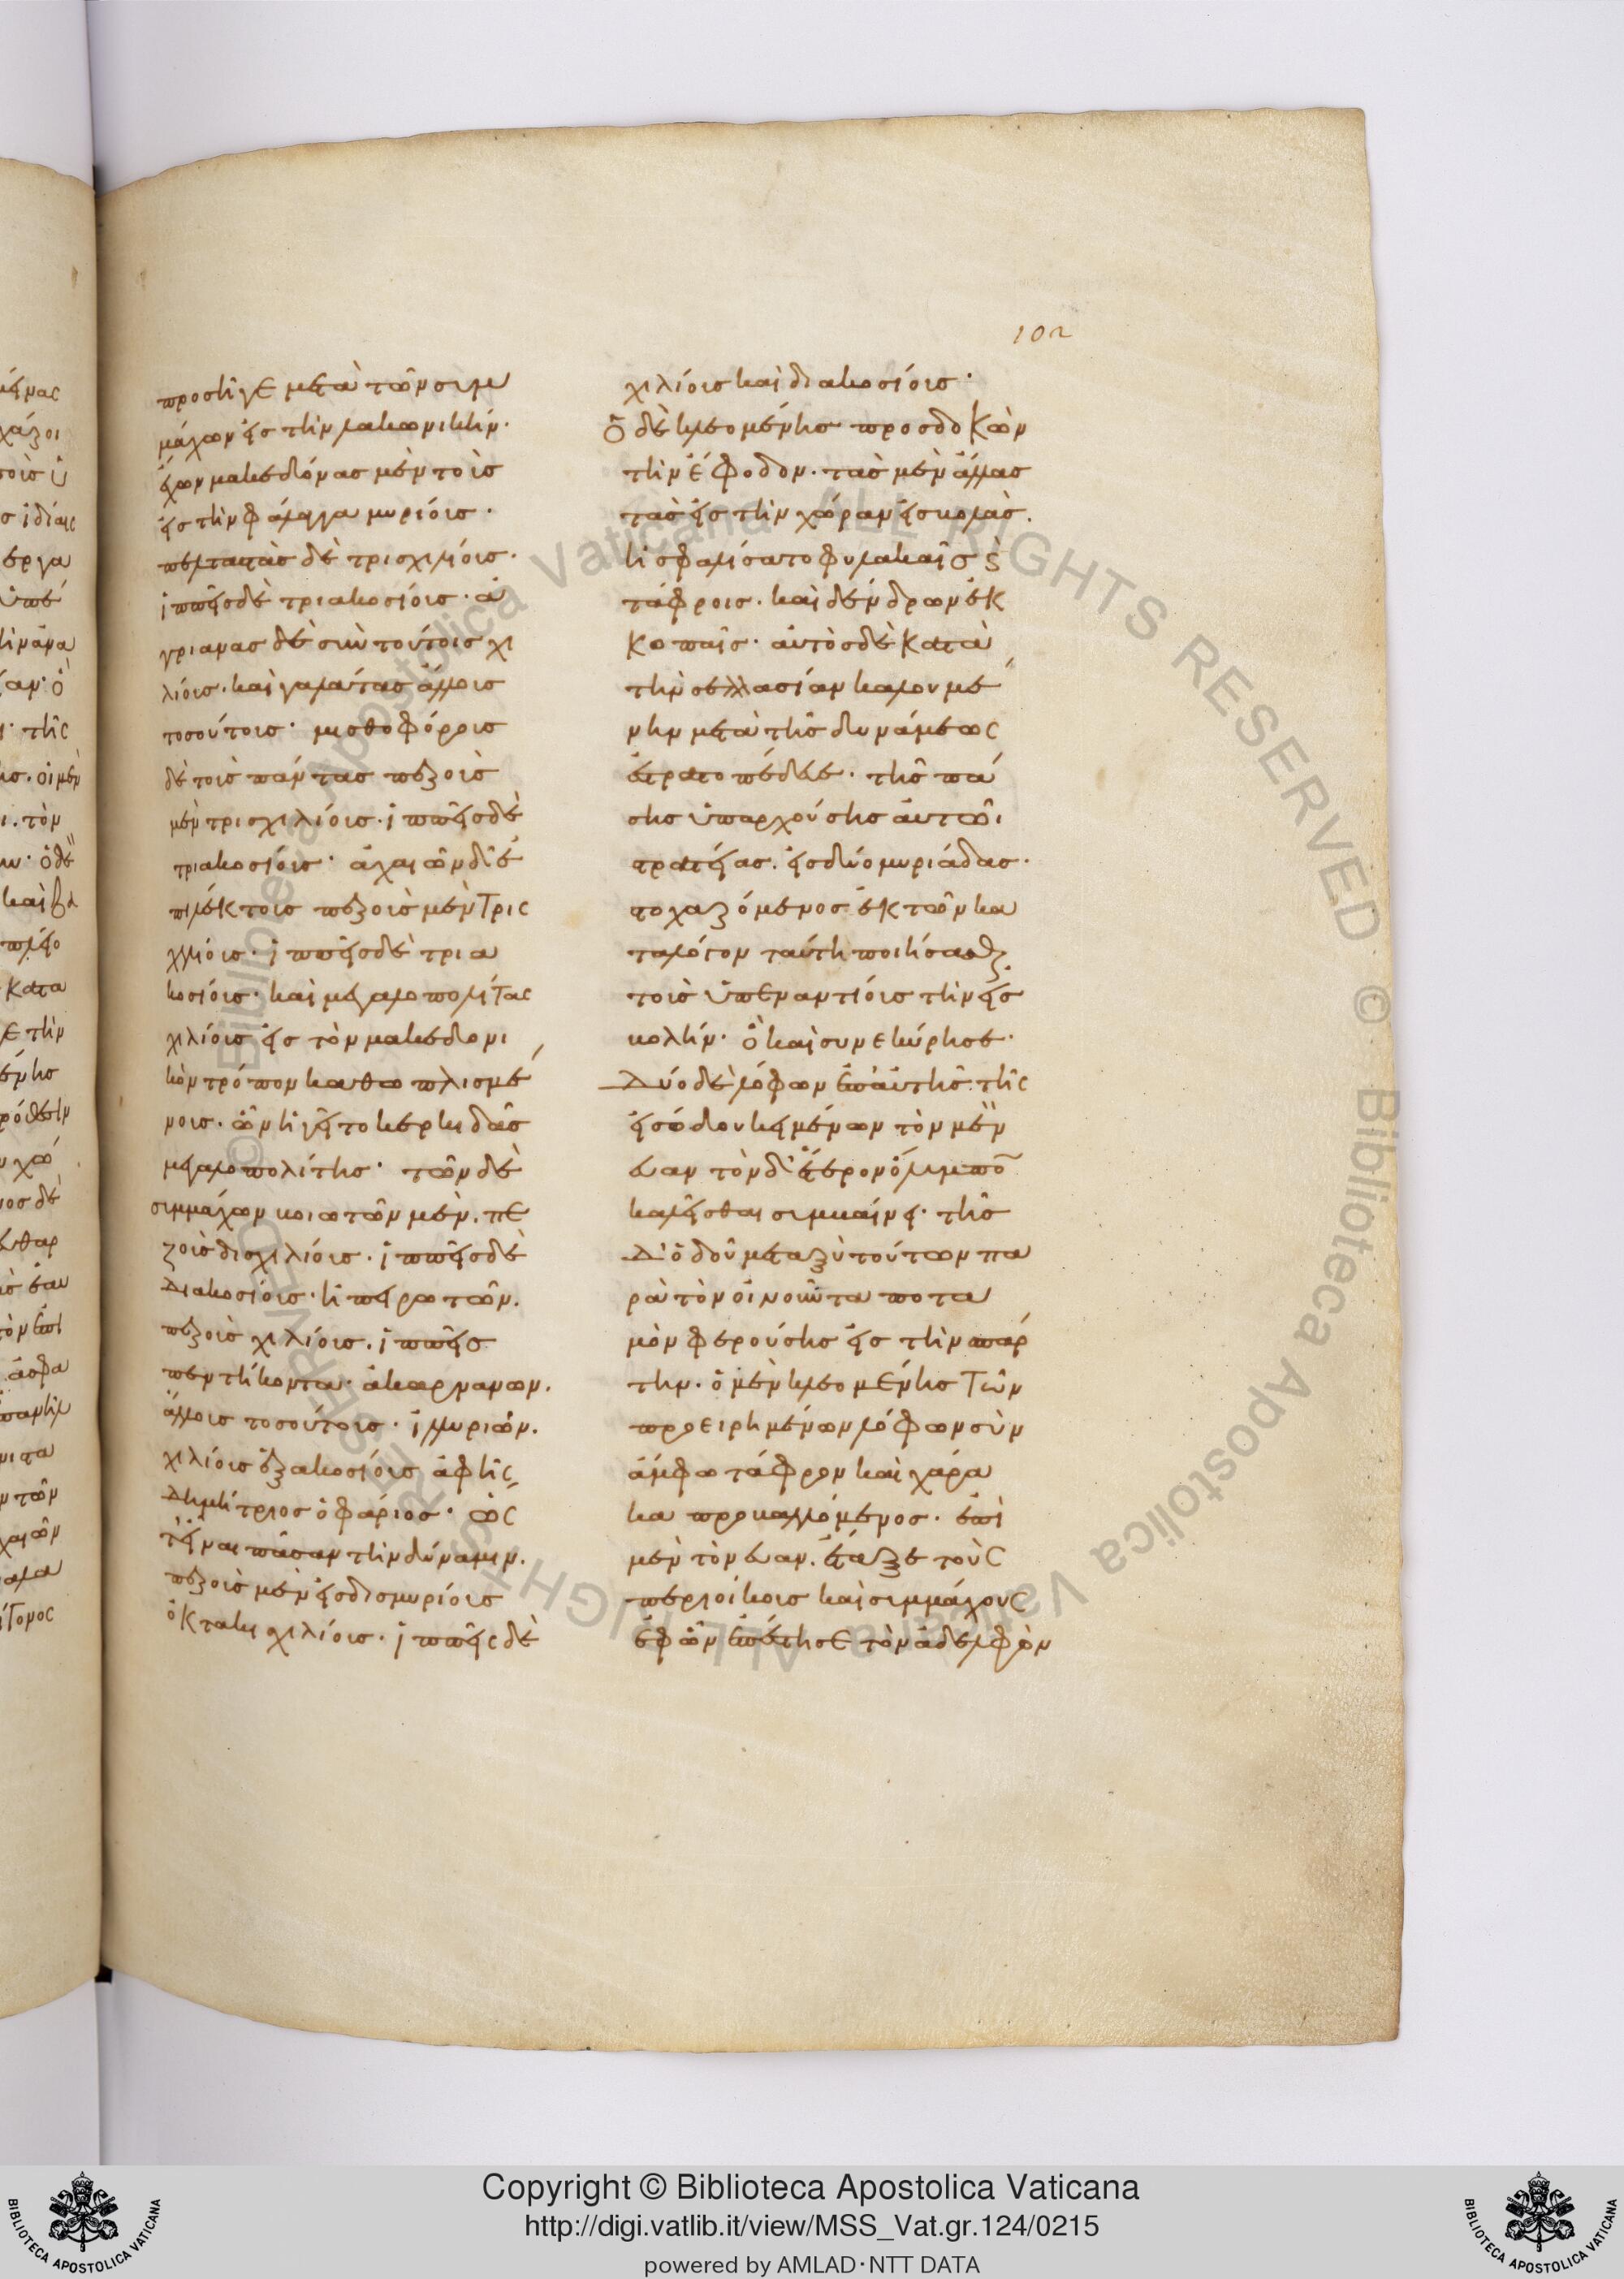 102
προσῆγε μετὰ τῶν συμ
μάχων εἰς τὴν λακωνικήν·
ἔχων μακεδόνας μὲν τοὺς
εἰς τὴν φάλαγγα μυρίους·
πελταστὰς δὲ τρισχιλίους·
ἱππεῖς δὲ τριακοσίους· ἀ
γριανας δὲ σὺν τούτοις χι
λίους· καὶ γαλάτας ἄλλους
τοσούτους· μισθοφόρους
δὲ τοὺς πάντας πεζοὺς
μὲν τρισχιλίους· ἱππεῖς δὲ
τριακοσίους· ἀχαιῶν δ' ἐ
πιλέκτους πεζοὺς μὲν τρις
χιλίους· ἱππεῖς δὲ τρια
κοσίους· καὶ μεγαλοπολίτας
χιλίους εἰς τὸν μακεδονι
κὸν τρόπον καθωπλισμέ
νους· ὧν ἡγεῖτο κερκιδᾶς
μεγαλοπολίτης· τῶν δὲ
συμμάχων βοιωτῶν μὲν· πε
ζοὺς δισχιλίους· ἱππεῖς δὲ
διακοσίους· ἠπειρωτῶν·
πεζοὺς χιλίους· ἱππεῖς
πεντήκοντα· ἀκαρνανων·
ἄλλους τοσούτους· ἰλλυριῶν·
χιλίους ἑξακοσίους ἐφ' ἧς
δημήτριος ὁ φάριος· ὡς
τ' εἶναι πᾶσαν τὴν δύναμιν·
πεζοὺς μὲν εἰς δισμυρίους
ὀκτακισχιλίους· ἱππεῖς δὲ
χιλίους καὶ διακοσίους·
Ὁ δὲ κλεομένης προσδοκῶν
τὴν ἔφοδον· τὰς μὲν ἄλλας
τὰς εἰς τὴν χώραν εἰσβολὰς·
ἠσφαλίσατο φυλακαῖς ϗ
τάφροις· καὶ δένδρων ἐκ
κοπαῖς· αὐτὸς δὲ κατὰ
τὴν σελλασίαν καλουμέ
νην μετὰ τῆς δυνάμεως
ἐστρατοπέδευε· τῆς πά
σης ὑπαρχούσης αὐτῶι
στρατείας· εἰς δύο μυριάδας·
στοχαζόμενος ἐκ τῶν κα
τα λόγον ταύτῃ ποιήσασθαι
τοὺς ὑπεναντίους τὴν εἰσ
βολήν· ὃ καὶ συνεκύρησε·
Δύο δὲ λόφων ἐπ' αὐτῆς τῆς
εἰσόδου κειμένων τὸν μὲν
ευαν τὸν δ' ἕτερον ὄλυμπον
καλεῖσθαι συμβαίνει· τῆς
δ' ὁδοῦ μεταξὺ τούτων πα
ρὰ τὸν οἰνοῦντα ποτα
μὸν φερούσης εἰς τὴν σπάρ
την· ὁ μὲν κλεομένης τῶν
προειρημένων λόφων σὺν
ἄμφω τάφρον καὶ χάρα
κα προβαλλόμενος· ἐπὶ
μὲν τὸν ευαν· ἔταξε τοὺς
περιοίκους καὶ συμμάχους
ἐφ' ὧν ἐπέστησε τὸν ἀδελφὸν
Copyright © Biblioteca Apostolica Vaticana
http://digi.vatlib.it/view/MSS_Vat.gr.124/0215
powered by AMLAD·NTT DATA